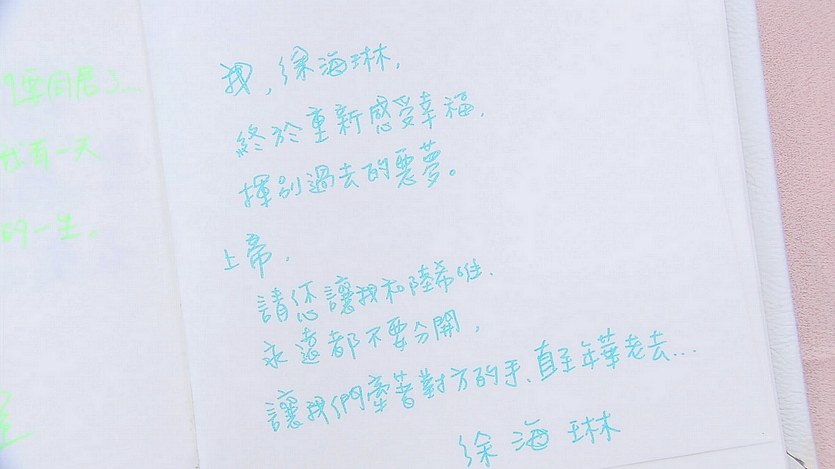 要同居了...
我有一天
的一生。
我，徐海琳，
終於重新感受幸福，
揮別過去的惡夢。
上帝，
請您讓我和陸希唯，
永遠都不要分開，
讓我們牽著對方的手，直至年華老去...
徐海琳